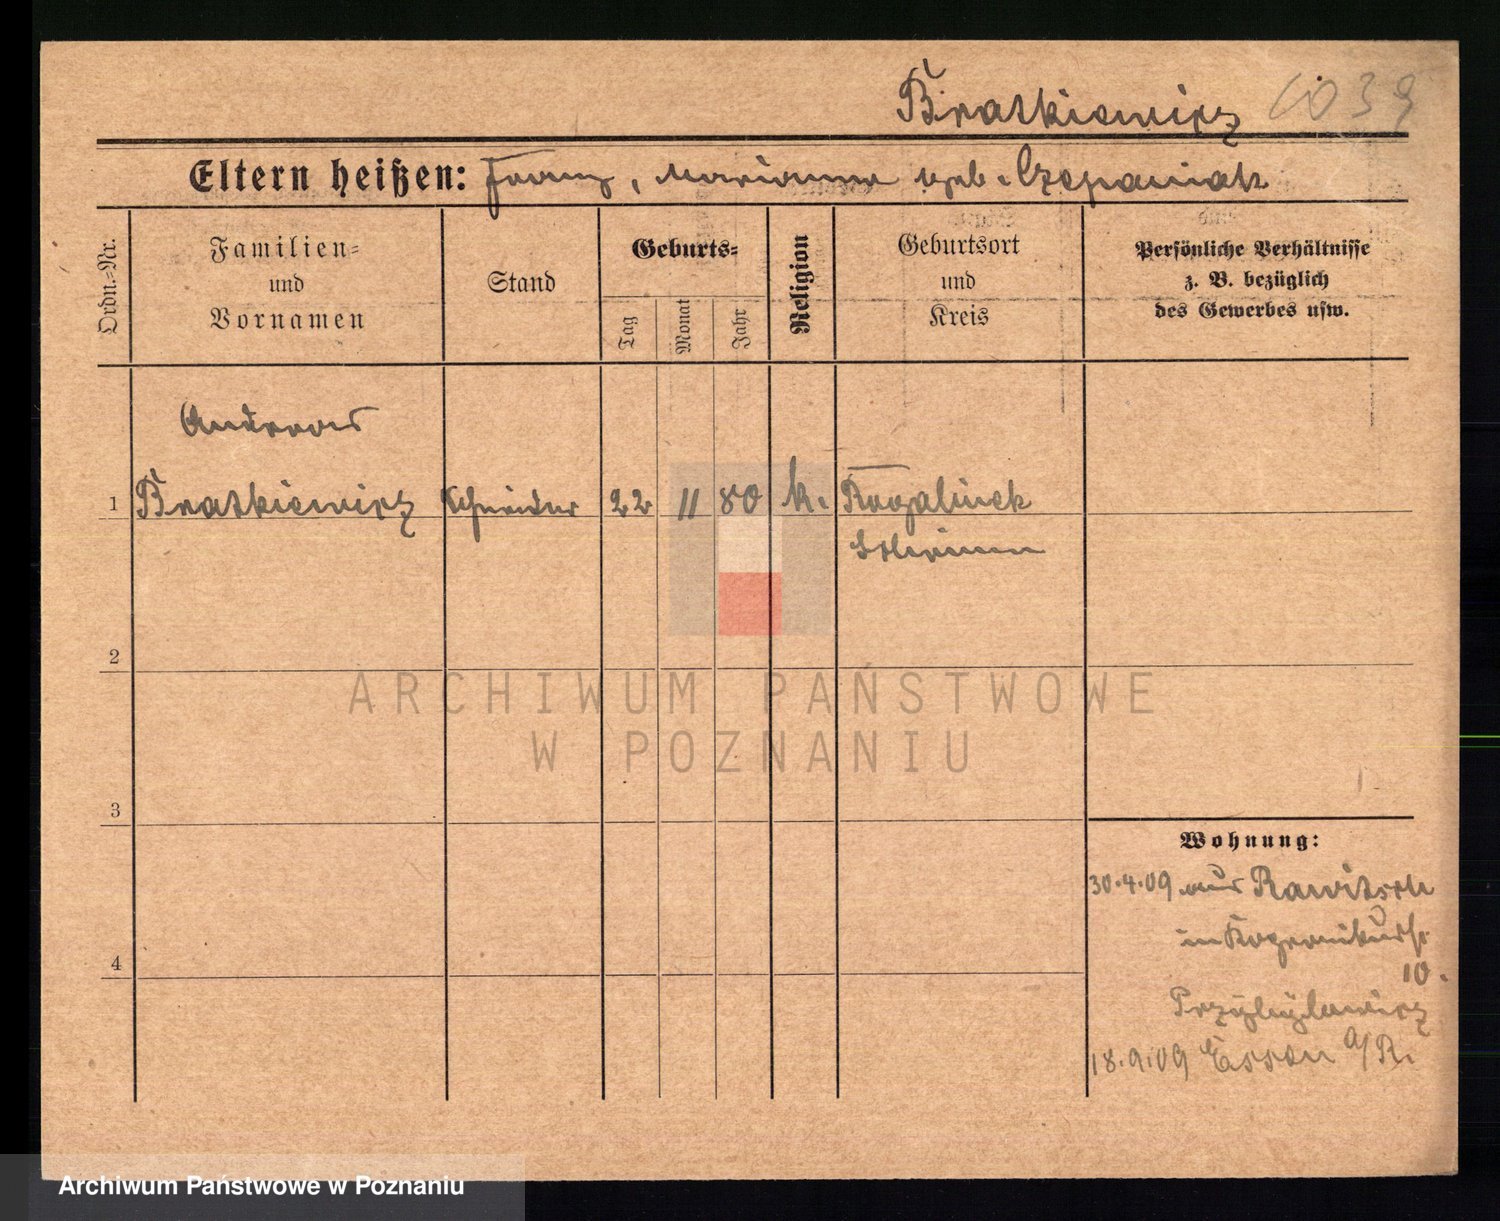 Bratkiewicz 1039
Eltern heißen: Franz, Marianna geb. Czepaniak
Ordn.-Nr.
Familien-
und
Vornamen
Stand
Geburts-
Tag
Monat
Jahr
Religion
Geburtsort
und
Kreis
Persönliche Verhältnisse
z. B. bezüglich
des Gewerbes usw.
Andreas
1 Bratkiewicz Schneider 22 11 80 k. Rogalinek
Schrimm
2
ARCHIWUM PAŃSTWOWE
W POZNANIU
3
Wohnung:
30.4.09 aus Rawitsch
in
4
10.
18.9.09 Essen a/R.
Archiwum Państwowe w Poznaniu